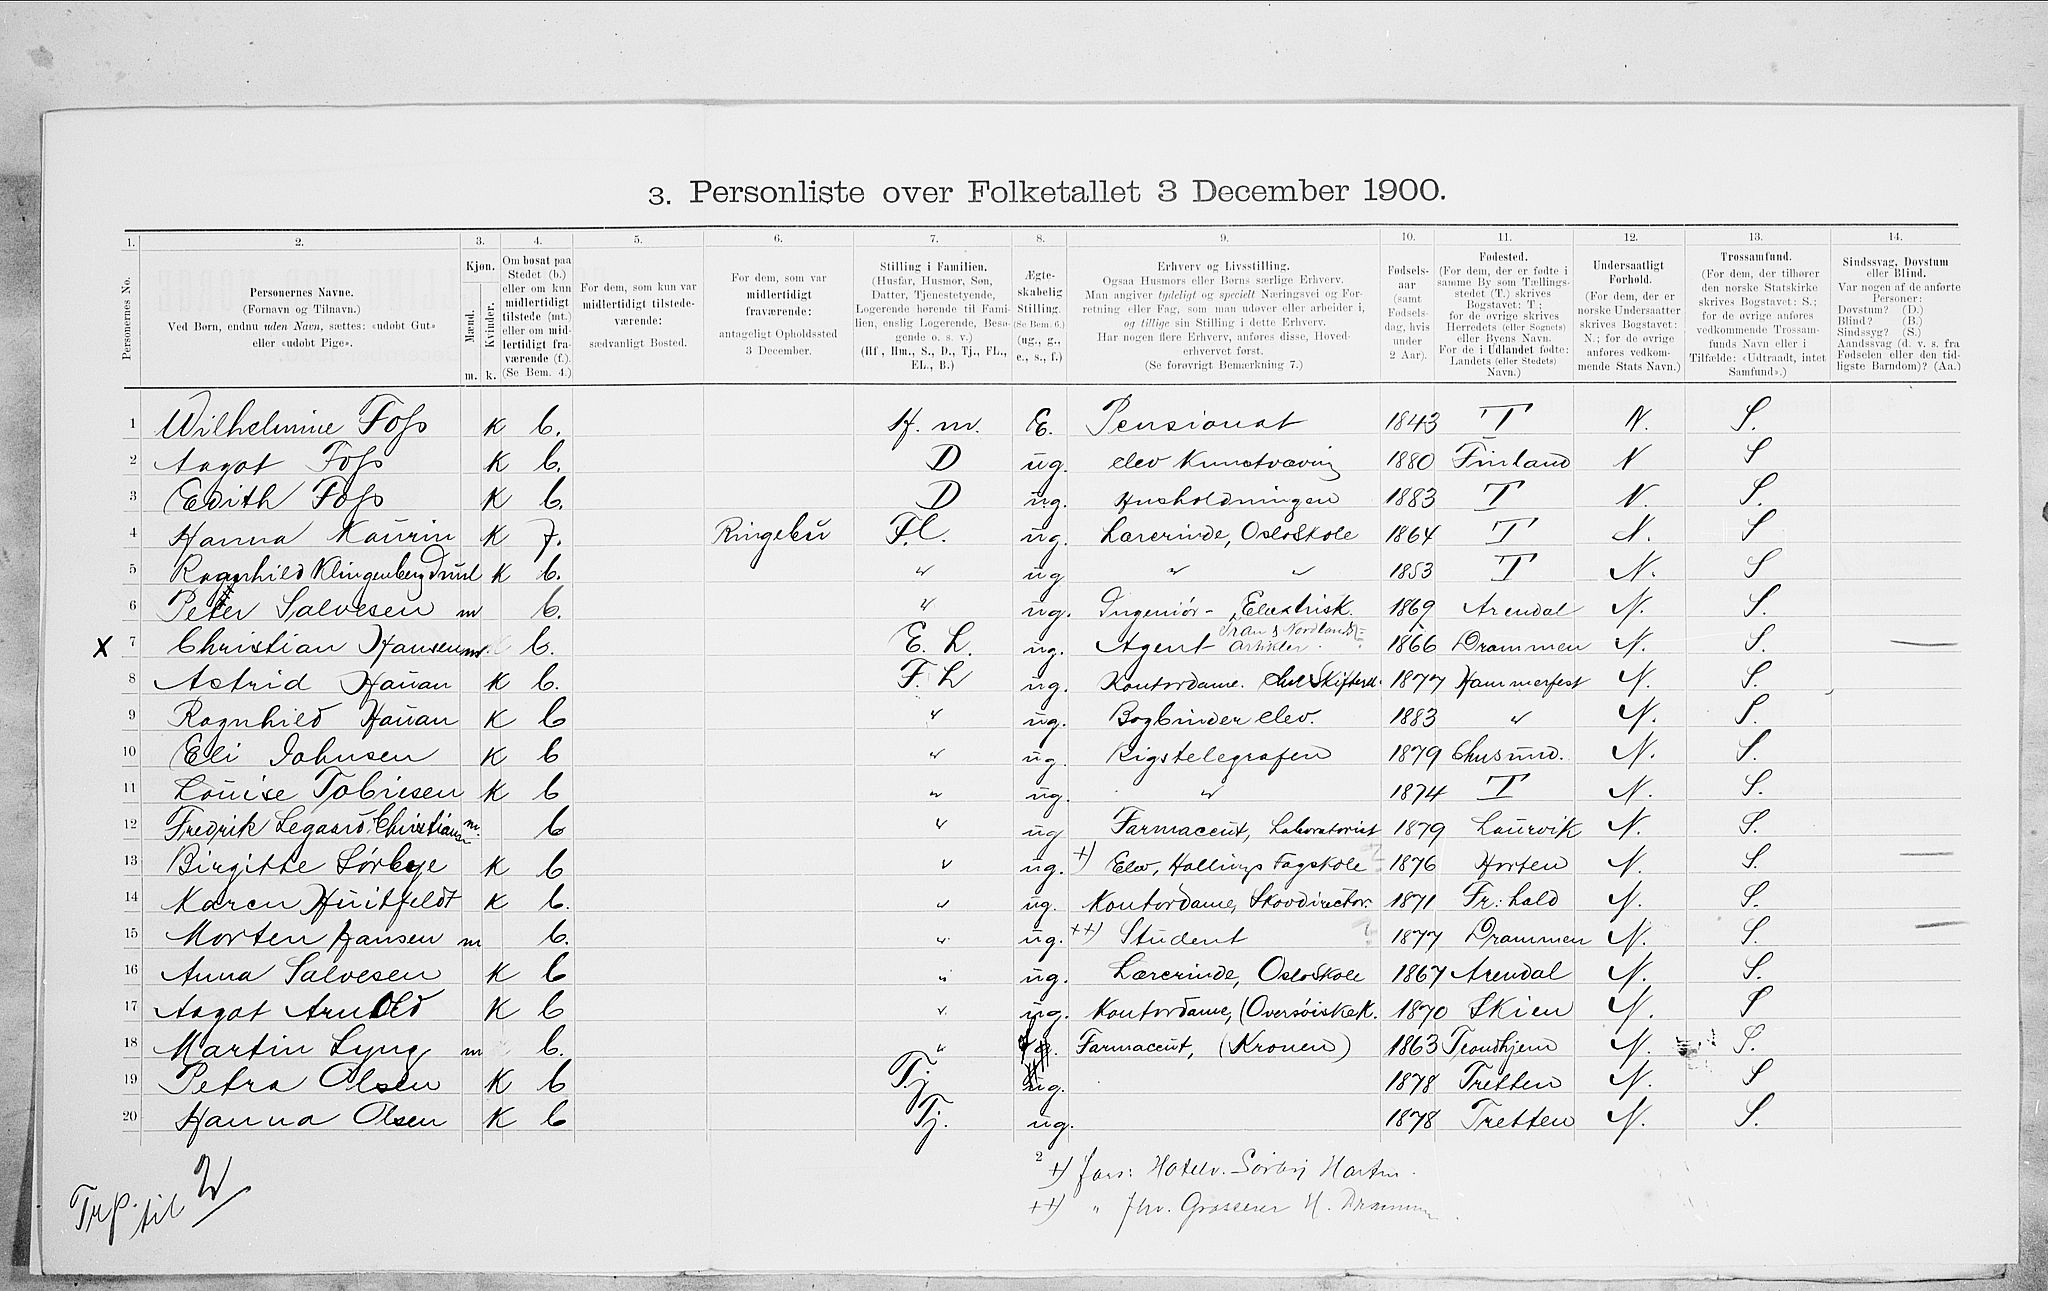 3. Personliste over Folketallet 3 December 1900.
1. 2. 3. 4. 5. 6. 7. 8. 9. 10. 11. 12. 13. 14.
Personernes No.
Personernes Navne.
(Fornavn og Tilnavn.)
Ved Børn, endnu uden Navn, sættes: «udøbt Gut»
eller «udøbt Pige».
Kjøn.
Mænd. Kvinder.
m. k.
Om bosat paa
Stedet (b.)
eller om kun
midlertidigt
tilstede (mt.)
eller om mid-
lertidigt fra-
værende (f.).
(Se Bem. 4.)
For dem, som kun var
midlertidigt tilstede-
værende:
sædvanligt Bosted.
For dem, som var
midlertidigt
fraværende:
antageligt Opholdssted
3 December.
Stilling i Familien.
(Husfar, Husmor, Søn,
Datter, Tjenestetyende,
Logerende hørende til Fami-
lien, enslig Logerende, Besø-
gende o. s. v.)
(Hf., Hm., S., D., Tj., FL.,
EL., B.)
Ægte-
skabelig
Stilling.
(Se Bem. 6.)
(ug., g.,
e., s., f.)
Erhverv og Livsstilling.
Ogsaa Husmors eller Børns særlige Erhverv.
Man angiver tydeligt og specielt Næringsvei og For-
retning eller Fag, som man udøver eller arbeider i,
og tillige sin Stilling i dette Erhverv.
Har nogen flere Erhverv, anføres disse, Hoved-
erhvervet først.
(Se forøvrigt Bemærkning 7.)
Fødsels-
aar
(samt
Fødsels-
dag, hvis
under
2 Aar).
Fødested.
(For dem, der er fødte i
samme By som Tællings-
stedet (T.) skrives
Bogstavet: T.;
for de øvrige skrives
Herredets (eller Sognets)
eller Byens Navn.
For de i Udlandet fødte:
Landets (eller Stedets)
Navn.)
Undersaatligt
Forhold.
(For dem, der er
norske Undersaatter
skrives Bogstavet:
N.; for de øvrige
anføres vedkom-
mende Stats Navn.)
Trossamfund.
(For dem, der tilhører
den norske Statskirke
skrives Bogstavet: S.;
for de øvrige anføres
vedkommende Trossam-
funds Navn eller i
Tilfælde: «Udtraadt, intet
Samfund».)
Sindssvag, Døvstum
eller Blind.
Var nogen af de anførte
Personer:
Døvstum? (D.)
Blind? (B.)
Sindssyg? (S.)
Aandssvag (d. v. s. fra
Fødselen eller den tid-
ligste Barndom)? (Aa.)
1 Wilhelmine Foss k b. H. m. E. Pensionat 1843 T N. S.
2 Aagot Foss k b. D ug. elev Kunstvæving 1880 Finland N S
3 Edith Foss k b. D ug. Husholdningen 1883 T N. S.
4 Hanna Kaurin k f. Ringebu F.L. ug. Lærerinde, Oslo Skole 1864 T N. S
5 Ragnhild Klingenberg k b. " ug " " 1853 T N. S
6 Peter Salvesen m b. " ug. Ingeniør - Electrisk. 1869 Arendal N. S.
X 7 Christian Hansen m b. E. L. ug. Agent Tran & Nordlands= Artikler. 1866 Drammen N. S. —
8 Astrid Hauan k b. F. L ug. Kontordame. 1877 Hammerfest N. S.
9 Ragnhild Hauan k b " ug. Bogbinder elev. 1883 " N. S.
10 Eli Johnsen k b " ug. Rigstelegrafen 1879 Chrsund. N. S.
11 Louise Tobiesen k b " ug. " 1874 T N. S.
12 Fredrik Legaard Christiansen m. b " ug Farmaceut, Laboratorist 1879 Laurvik N. S.
13 Birgitte Sørbye k b " ug. +) Elev, Hallings Fagskole 1876 Horten N. S. —
14 Karen Huitfeldt k b. " ug. Kontordame, Skovdirector. 1871 Fr:hald N. S.
15 Morten Hansen m b. " ug. ++) Student 1877 Drammen N. S. —
16 Anna Salvesen k b " ug. Lærerinde, Oslo Skole 1867 Arendal N. S.
17 Aagot Arnold k b " ug. Kontordame, (Oversøiske K. 1870 Skien N. S
18 Martin Lyng m b. " Farmaceut, (Kronen) 1863 Trondhjem N. S.
19 Petra Olsen k b Tj ug. 1878 Tretten N. S
20 Hanna Olsen k b Tj. ug. 1878 Tretten N. S.
2
+) fars: Hotelv. Sørby Horten.
++) " fhv. Grosserer H. Drammen.
Trp. til 2